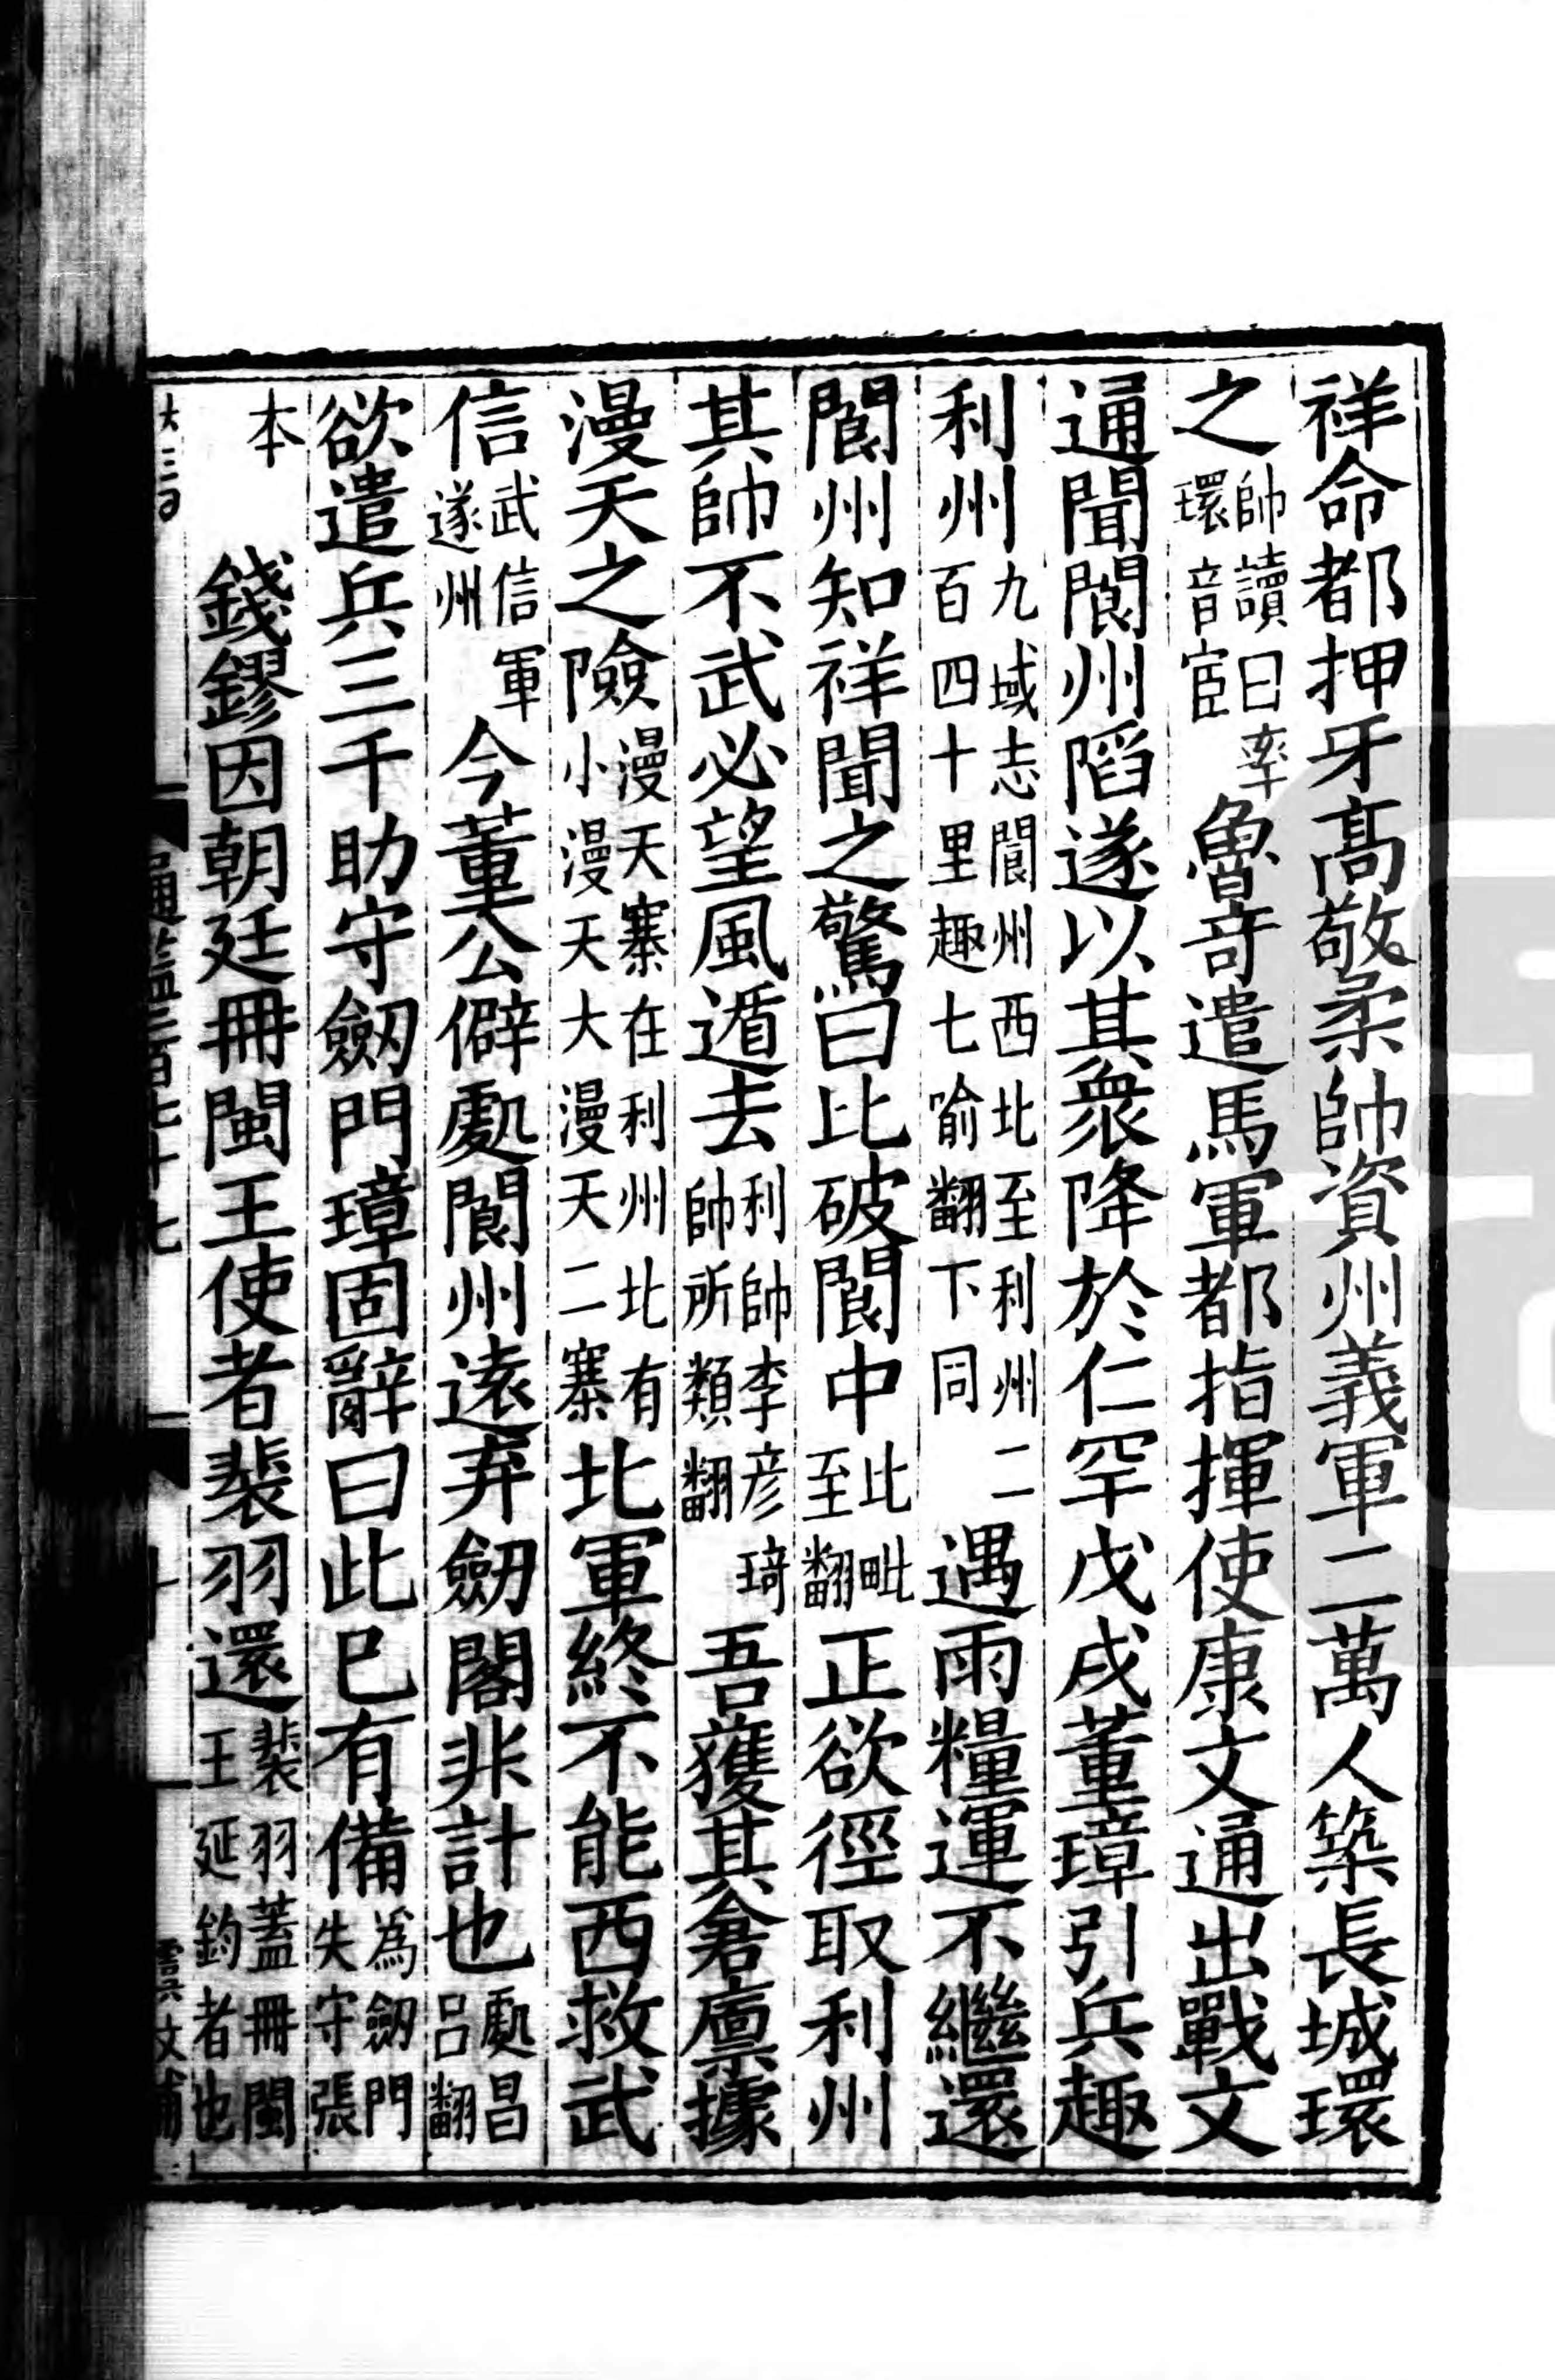 祥命都押牙髙敬柔帥資州義軍二萬人築長城環
之帥讀曰率環音宦魯竒遣馬軍都指揮使康文通出戰文
通聞閬州䧟遂以其衆降於仁罕戊戌董璋引兵趣
利州九域志閬州西北至利州二百四十里趣七喻翻下同遇雨糧運不繼還
閬州知祥聞之驚曰比破閬中比毗至翻正欲徑取利州
其帥不武必望風遁去利帥李彦琦帥所類翻吾獲其倉廪據
漫天之險漫天寨在利州北有小漫天大漫天二寨北軍終不能西救武
信武信軍遂州今董公僻處閬州逺弃劒閣非計也處昌呂翻
欲遣兵三千助守劒門璋固辭曰此巳有備為劒門失守張
本錢鏐因朝廷冊閩王使者裴羽還裴羽蓋冊閩王延鈞者也
通鑑二百七十七